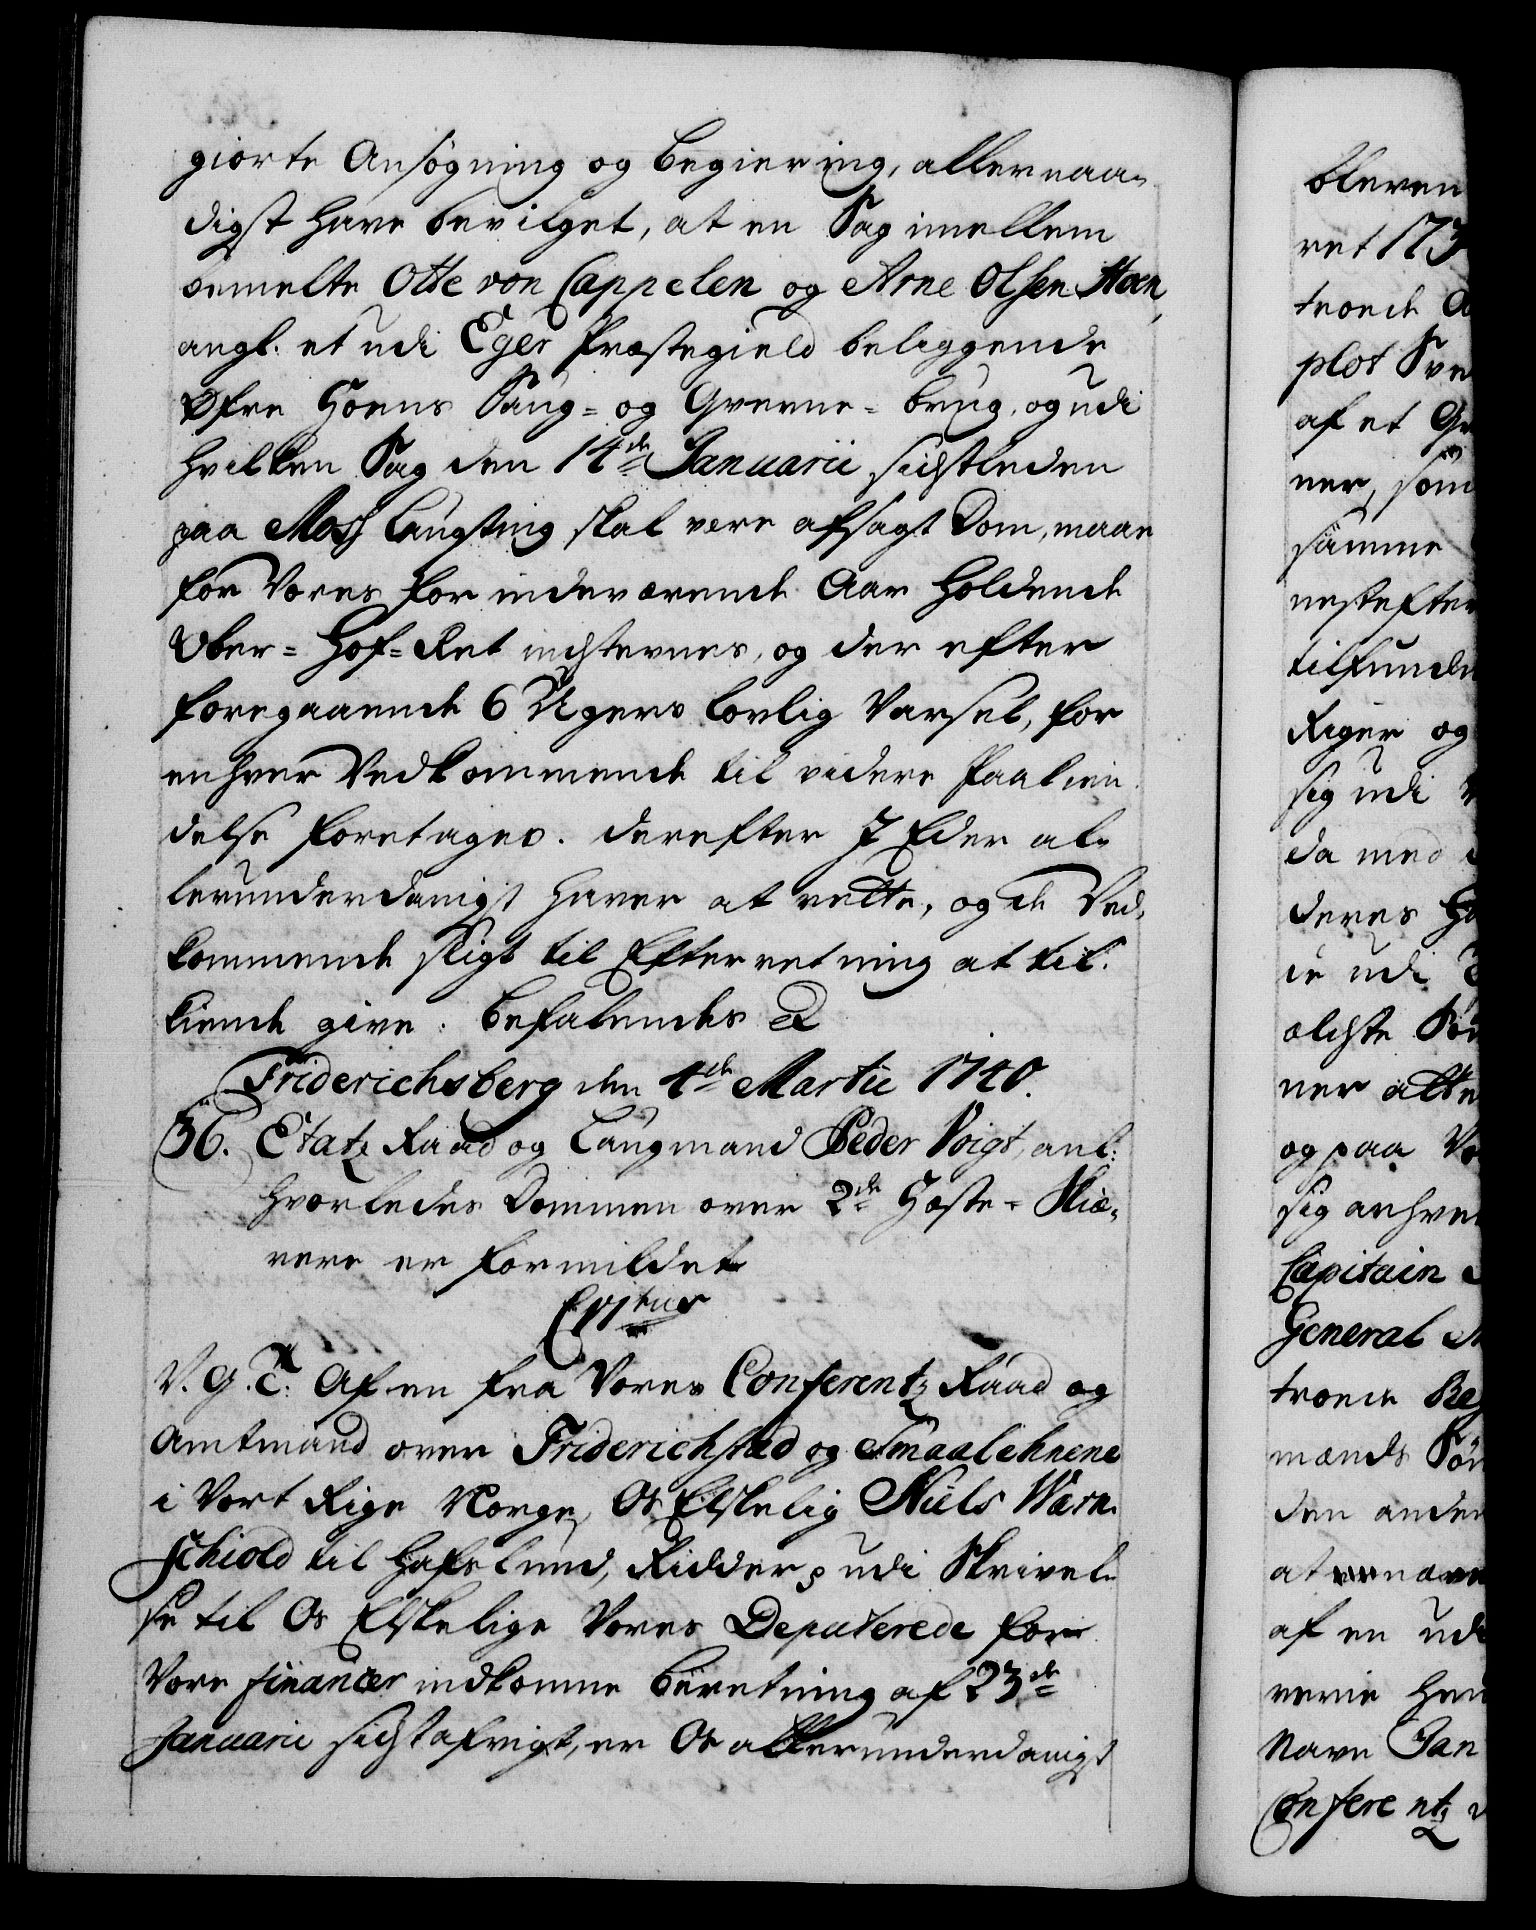 giorte Ansøgning og begiering, allernaa-
digst have bevilget, at en Sag imellem
bemelte Otte von Cappelen og Arne Olsen Hoen,
angl. et udi Eger Præstegield beliggende
Øfre Hoens Saug- og Qverne-brug, og udi
hvilken Sag den 14de Januarii sidstleden
paa Moss Laugting skal være afsagt Dom, maae
for Vores for indeværende Aar holdende
Ober-Hof-Ret indstevnes, og der efter
foregaaende 6 Ugers lovlig Varsel, for
enhver Vedkommende til videre Paakien-
delse foretages. Derefter I Eder al-
lerunderdanigst haver at rette, og de Ved-
kommende sligt til Efterretning at til-
kiende give. Befalendes &
Friderichsberg den 4de Martii 1740.
36. Etatz Raad og Laugmand Peder Voigt, anl:
hvorledes Dommen over 2de Heste-Skiæ-
rere er formildet
C. VItus
V. G. T. Af en fra Vores Conferentz Raad og
Amtmand over Friderichstad og Smaalehnene
i Vort Rige Norge, Os Elskelig Niels Wern-
schiold til Hafslund, Ridder, udi Skrivel-
se til Os Elskelige Vores Deputerede for
Vore Financer indkomne Beretning af 23de
Januarii sidstafvigt, er Os allerunderdanigst
bleven
ret 173
troede
plot
af et
ner, som
samme
nestefter
tilfunde
Riger og
sig udi
da med
deres
ie udi
ældste
ner atte
og paa
sig anhve
Capitain
General
troede
mands
den anden
at
af en ude
Navn Jan
Conferentz